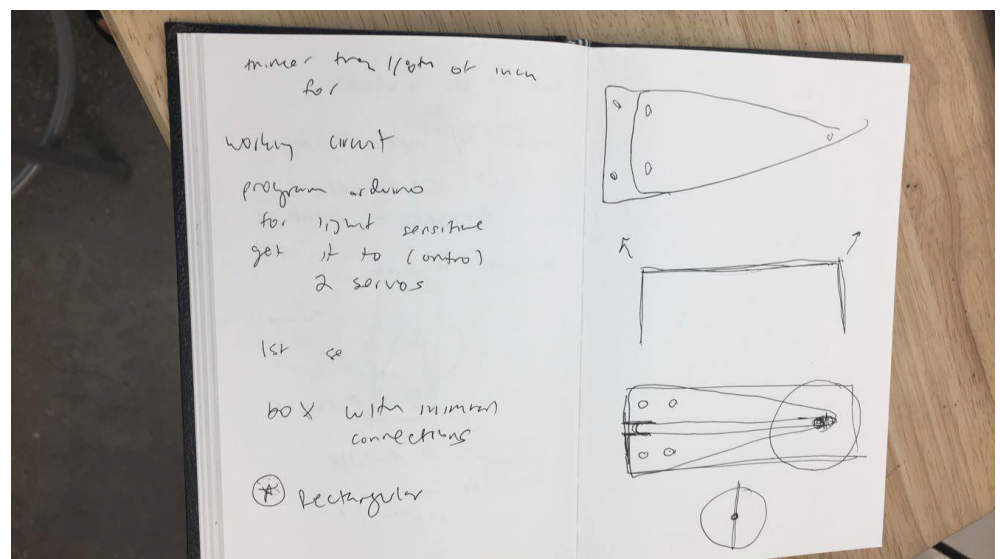 thinner than 1/8th of inch
for
working circuit
program arduino
for light sensitive
get it to control
2 servos
1st se
box with
connections
Rectangular